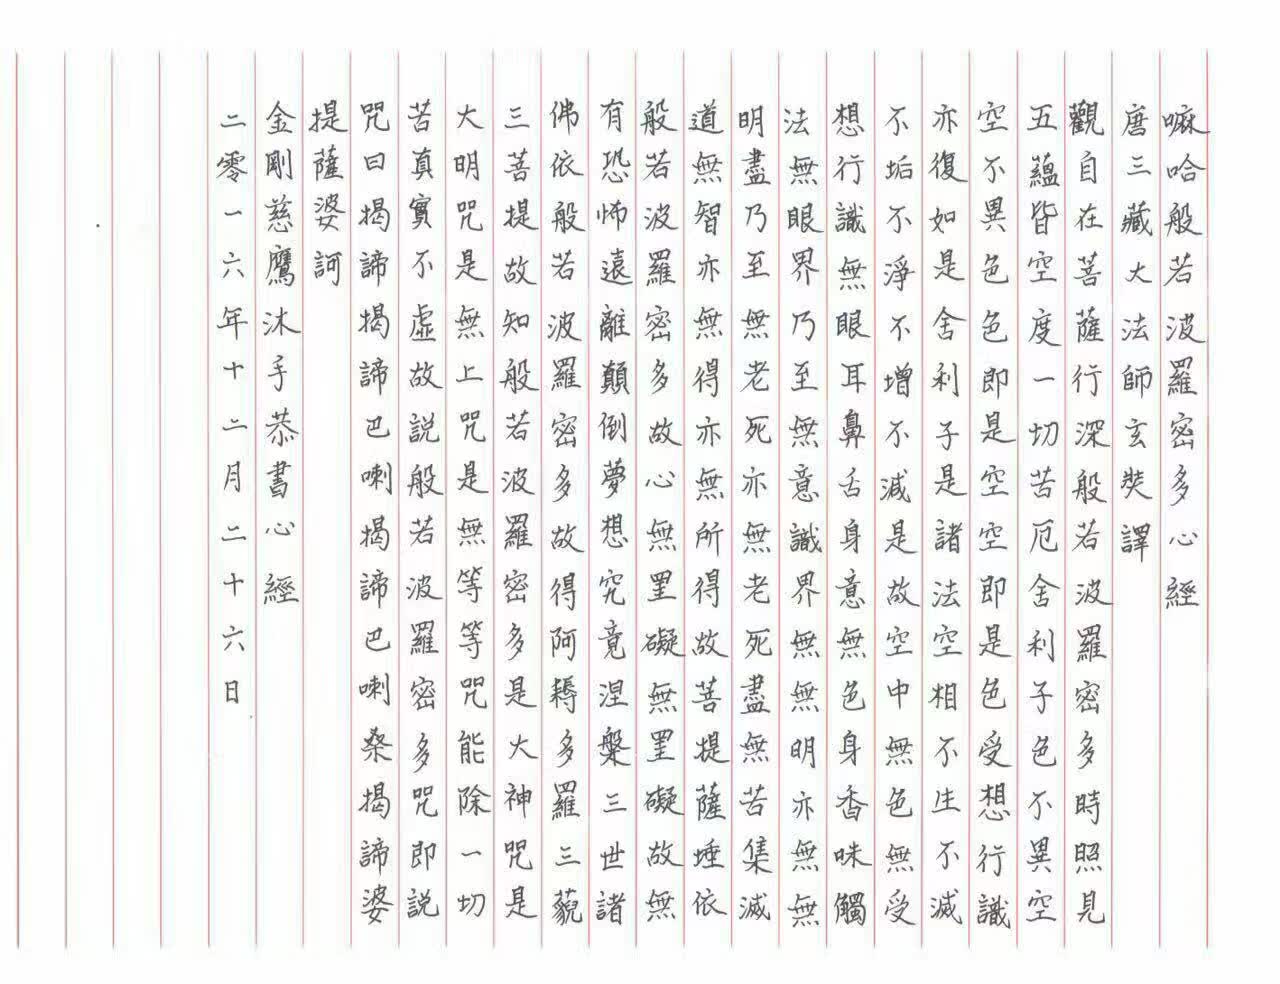 嘛哈般若波羅密多心經
唐三藏大法師玄奘譯
觀自在菩薩行深般若波羅密多時照見
五蘊皆空度一切苦厄舍利子色不異空
空不異色色即是空空即是色受想行識
亦復如是舍利子是諸法空相不生不滅
不垢不淨不增不減是故空中無色無受
想行識無眼耳鼻舌身意無色身香味觸
法無眼界乃至無意識界無無明亦無無
明盡乃至無老死亦無老死盡無苦集滅
道無智亦無得亦無所得故菩提薩埵依
般若波羅密多故心無罣礙無罣礙故無
有恐怖遠離顛倒夢想究竟涅槃三世諸
佛依般若波羅密多故得阿耨多羅三藐
三菩提故知般若波羅密多是大神咒是
大明咒是無上咒是無等等咒能除一切
苦真實不虛故說般若波羅密多咒即說
咒曰揭諦揭諦巴喇揭諦巴喇桑揭諦婆
提薩婆訶
金剛慈鷹沐手恭書心經
二零一六年十二月二十六日